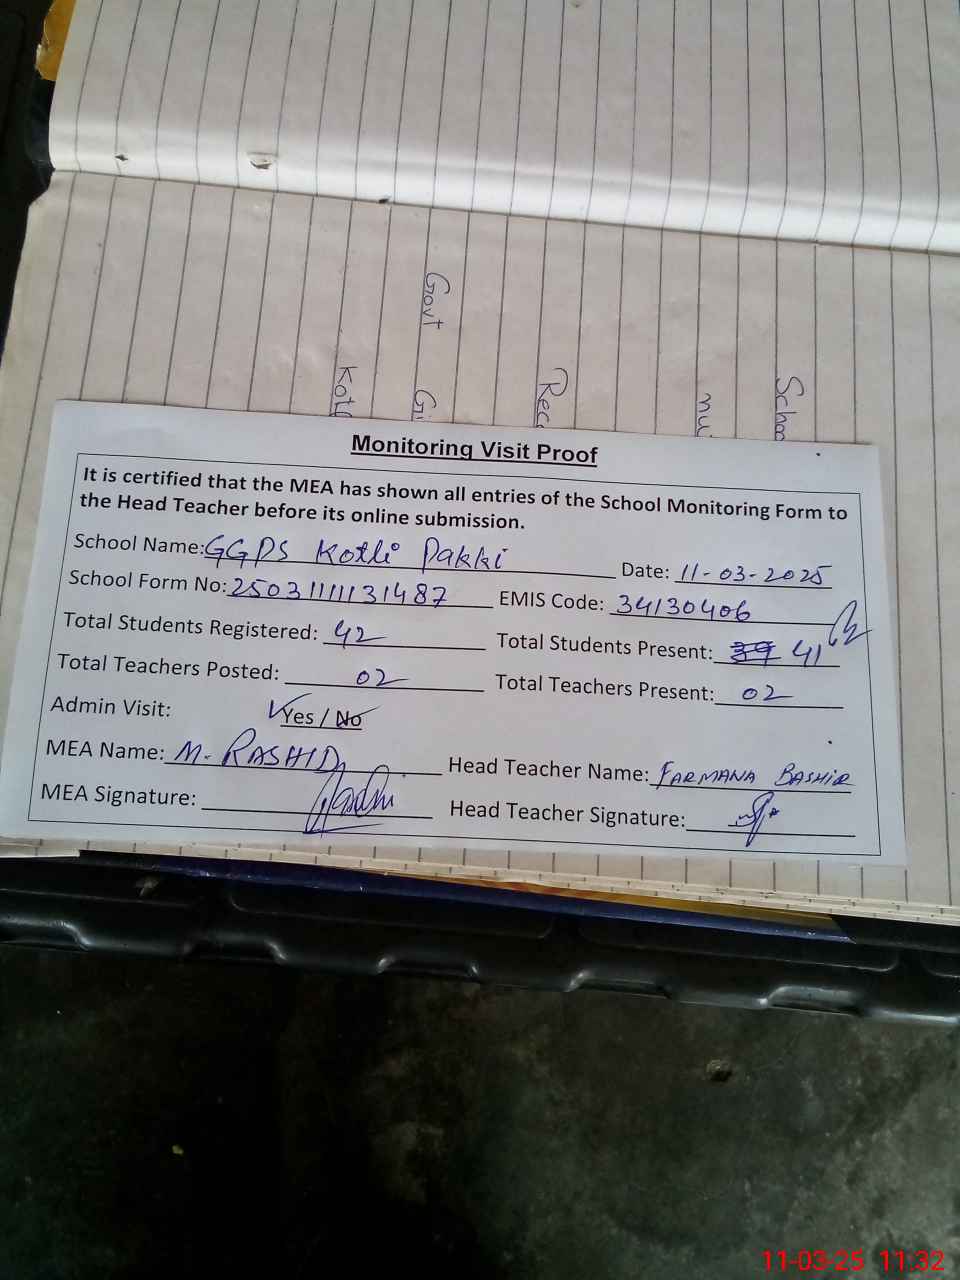 Govt Gi
Kotl
Rec
nu
Schoo
Monitoring Visit Proof
It is certified that the MEA has shown all entries of the School Monitoring Form to
the Head Teacher before its online submission.
School Name: GGPS Kotli Pakki Date: 11-03-2025
School Form No: 25031111131487 EMIS Code: 34130406
Total Students Registered: 42 Total Students Present: 39 41
Total Teachers Posted: 02 Total Teachers Present: 02
Admin Visit: Yes / No
MEA Name: M. RASHID Head Teacher Name: FARMANA BASHIR
MEA Signature: Head Teacher Signature:
11-03-25 11:32